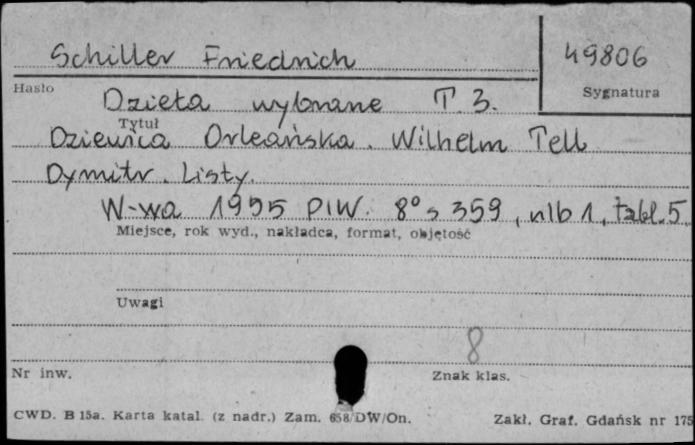 Schiller Friedrich
49806
Hasło
Sygnatura
Dzieła wybrane T. 3.
Tytuł
Dziewica Orleańska. Wilhelm Tell
Dymitr. Listy.
W-wa 1955 PIW. 8° s 359, nlb 1, tabl. 5
Miejsce, rok wyd., nakładca, format, objętość
Uwagi
8
Nr inw.
Znak klas.
CWD. B 15a. Karta katal. (z nadr.) Zam. 658/DW/On.
Zakł. Graf. Gdańsk nr 175